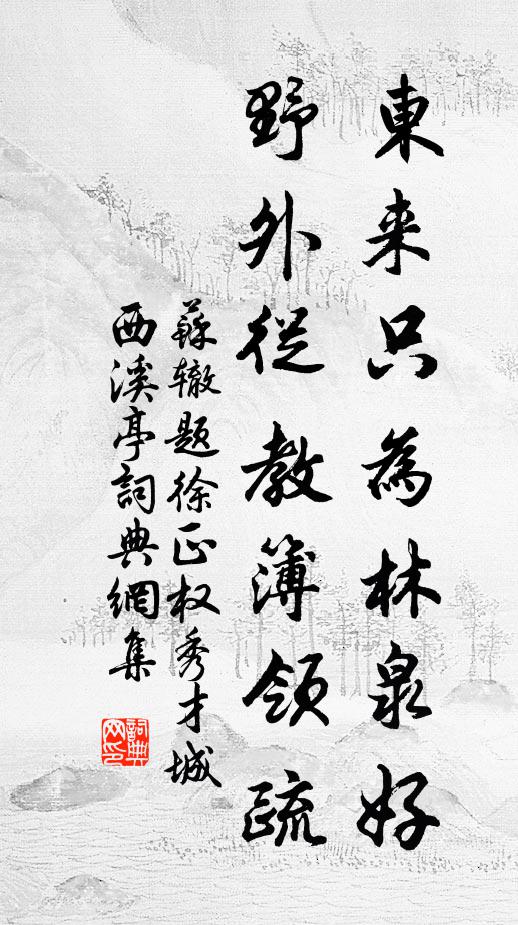 東来只為林泉好
野外從教簿領疏
蘇辙題徐正权秀才城
西溪亭詞典網集
詞典
网印